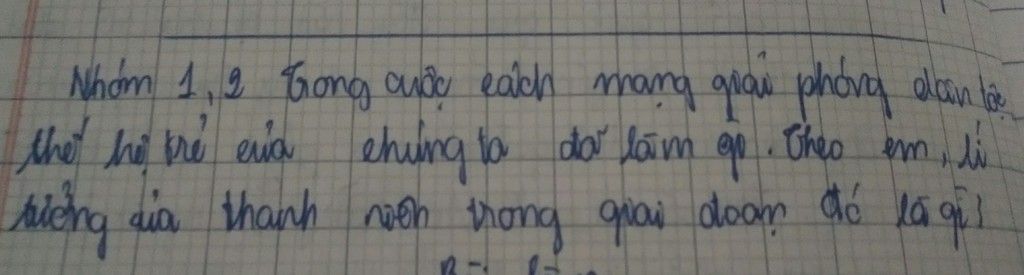 Nhóm 1, 2 Trong cuộc cách mạng giải phóng dân tộc
thế hệ trẻ của chúng ta đã làm gì. Theo em, lí
tưởng của thanh niên trong giai đoạn đó là gì?